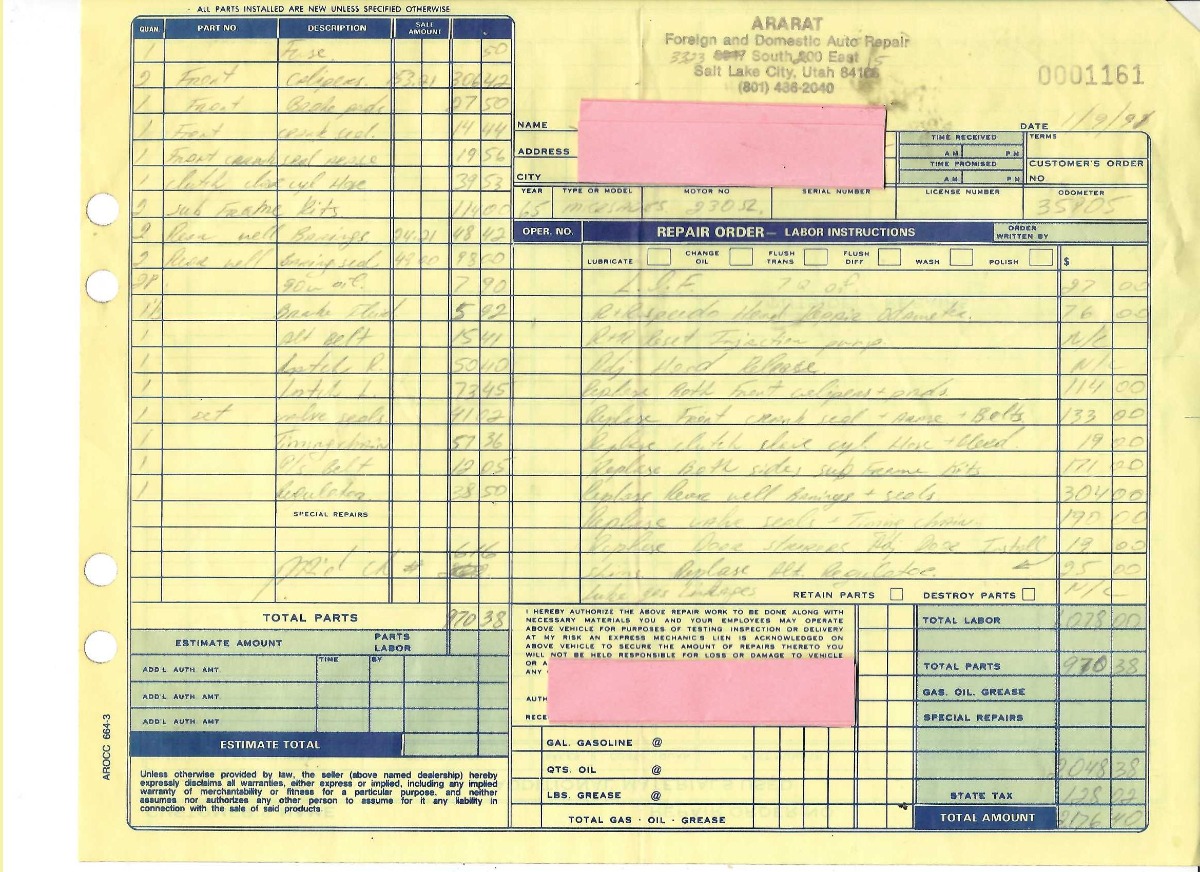 ALL PARTS INSTALLED ARE NEW UNLESS SPECIFIED OTHERWISE
QUAN. PART NO. DESCRIPTION SALE AMOUNT
1 Fuse 50
2 Front calipers 153.21 306 42
1 Front Brake pads 27 50
1 Front crank seal 14 44
1 Front crank seal 19 56
1 clutch slave cyl Hose 39 53
2 sub Frame Kits 114 00
2 Rear well Barings 24.21 48 42
2 Rear well baring seal 49.00 98 00
2P 90w oil. 7 90
Brake Fluid 5 92
1 Alt Belt 15 41
1 R. 50 10
1 L. 73 45
1 set valve seals 41 02
1 Timing chain 57 36
1 P/S Belt 12 05
1 Regulator 38 50
SPECIAL REPAIRS
CK #
TOTAL PARTS 970 38
ESTIMATE AMOUNT PARTS LABOR
TIME BY
ADD'L AUTH. AMT.
ADD'L AUTH. AMT.
ADD'L AUTH. AMT
ESTIMATE TOTAL
Unless otherwise provided by law, the seller (above named dealership) hereby
expressly disclaims all warranties, either express or implied, including any implied
warranty of merchantability or fitness for a particular purpose, and neither
assumes nor authorizes any other person to assume for it any liability in
connection with the sale of said products.
AROCC 664-3
ARARAT
Foreign and Domestic Auto Repair
3373 South 300 East
Salt Lake City, Utah 84106
(801) 436-2040
0001161
NAME
ADDRESS
CITY
DATE 1/9/98
TIME RECEIVED
A M P M
TIME PROMISED
A M P M
TERMS
CUSTOMER'S ORDER
NO
YEAR TYPE OR MODEL MOTOR NO SERIAL NUMBER LICENSE NUMBER ODOMETER
65 230SL
OPER. NO. REPAIR ORDER— LABOR INSTRUCTIONS ORDER WRITTEN BY
LUBRICATE CHANGE OIL FLUSH TRANS FLUSH DIFF WASH POLISH $
L.O.F. 7 Q of. 27 00
R+R speedo Head Repair odameter. 76 00
R+R Reset Injection pump. N/C
Adj Hood Release. N/C
Replase Both Front calipers + pads 114 00
Replase Front crank seal + + Bolts 133 00
Replase clutch slave cyl Hose + bleed. 19 00
Replase Both sides sub Frame Kits 171 00
Replase Rear well Barings + seals. 304 00
Replase valve seals + Timing chain 190 00
Replase Door Adj Door Install 19 00
Replase Alt. Regulator. 25 00
Lube gas Linkages N/C
RETAIN PARTS DESTROY PARTS
I HEREBY AUTHORIZE THE ABOVE REPAIR WORK TO BE DONE ALONG WITH
NECESSARY MATERIALS YOU AND YOUR EMPLOYEES MAY OPERATE
ABOVE VEHICLE FOR PURPOSES OF TESTING INSPECTION OR DELIVERY
AT MY RISK AN EXPRESS MECHANIC'S LIEN IS ACKNOWLEDGED ON
ABOVE VEHICLE TO SECURE THE AMOUNT OF REPAIRS THERETO YOU
WILL NOT BE HELD RESPONSIBLE FOR LOSS OR DAMAGE TO VEHICLE
OR A
ANY
AUTH
RECE
TOTAL LABOR 1078 00
TOTAL PARTS 970 38
GAS. OIL. GREASE
SPECIAL REPAIRS
2048 38
STATE TAX 128 02
TOTAL AMOUNT 2176 40
GAL. GASOLINE @
QTS. OIL @
LBS. GREASE @
TOTAL GAS · OIL · GREASE